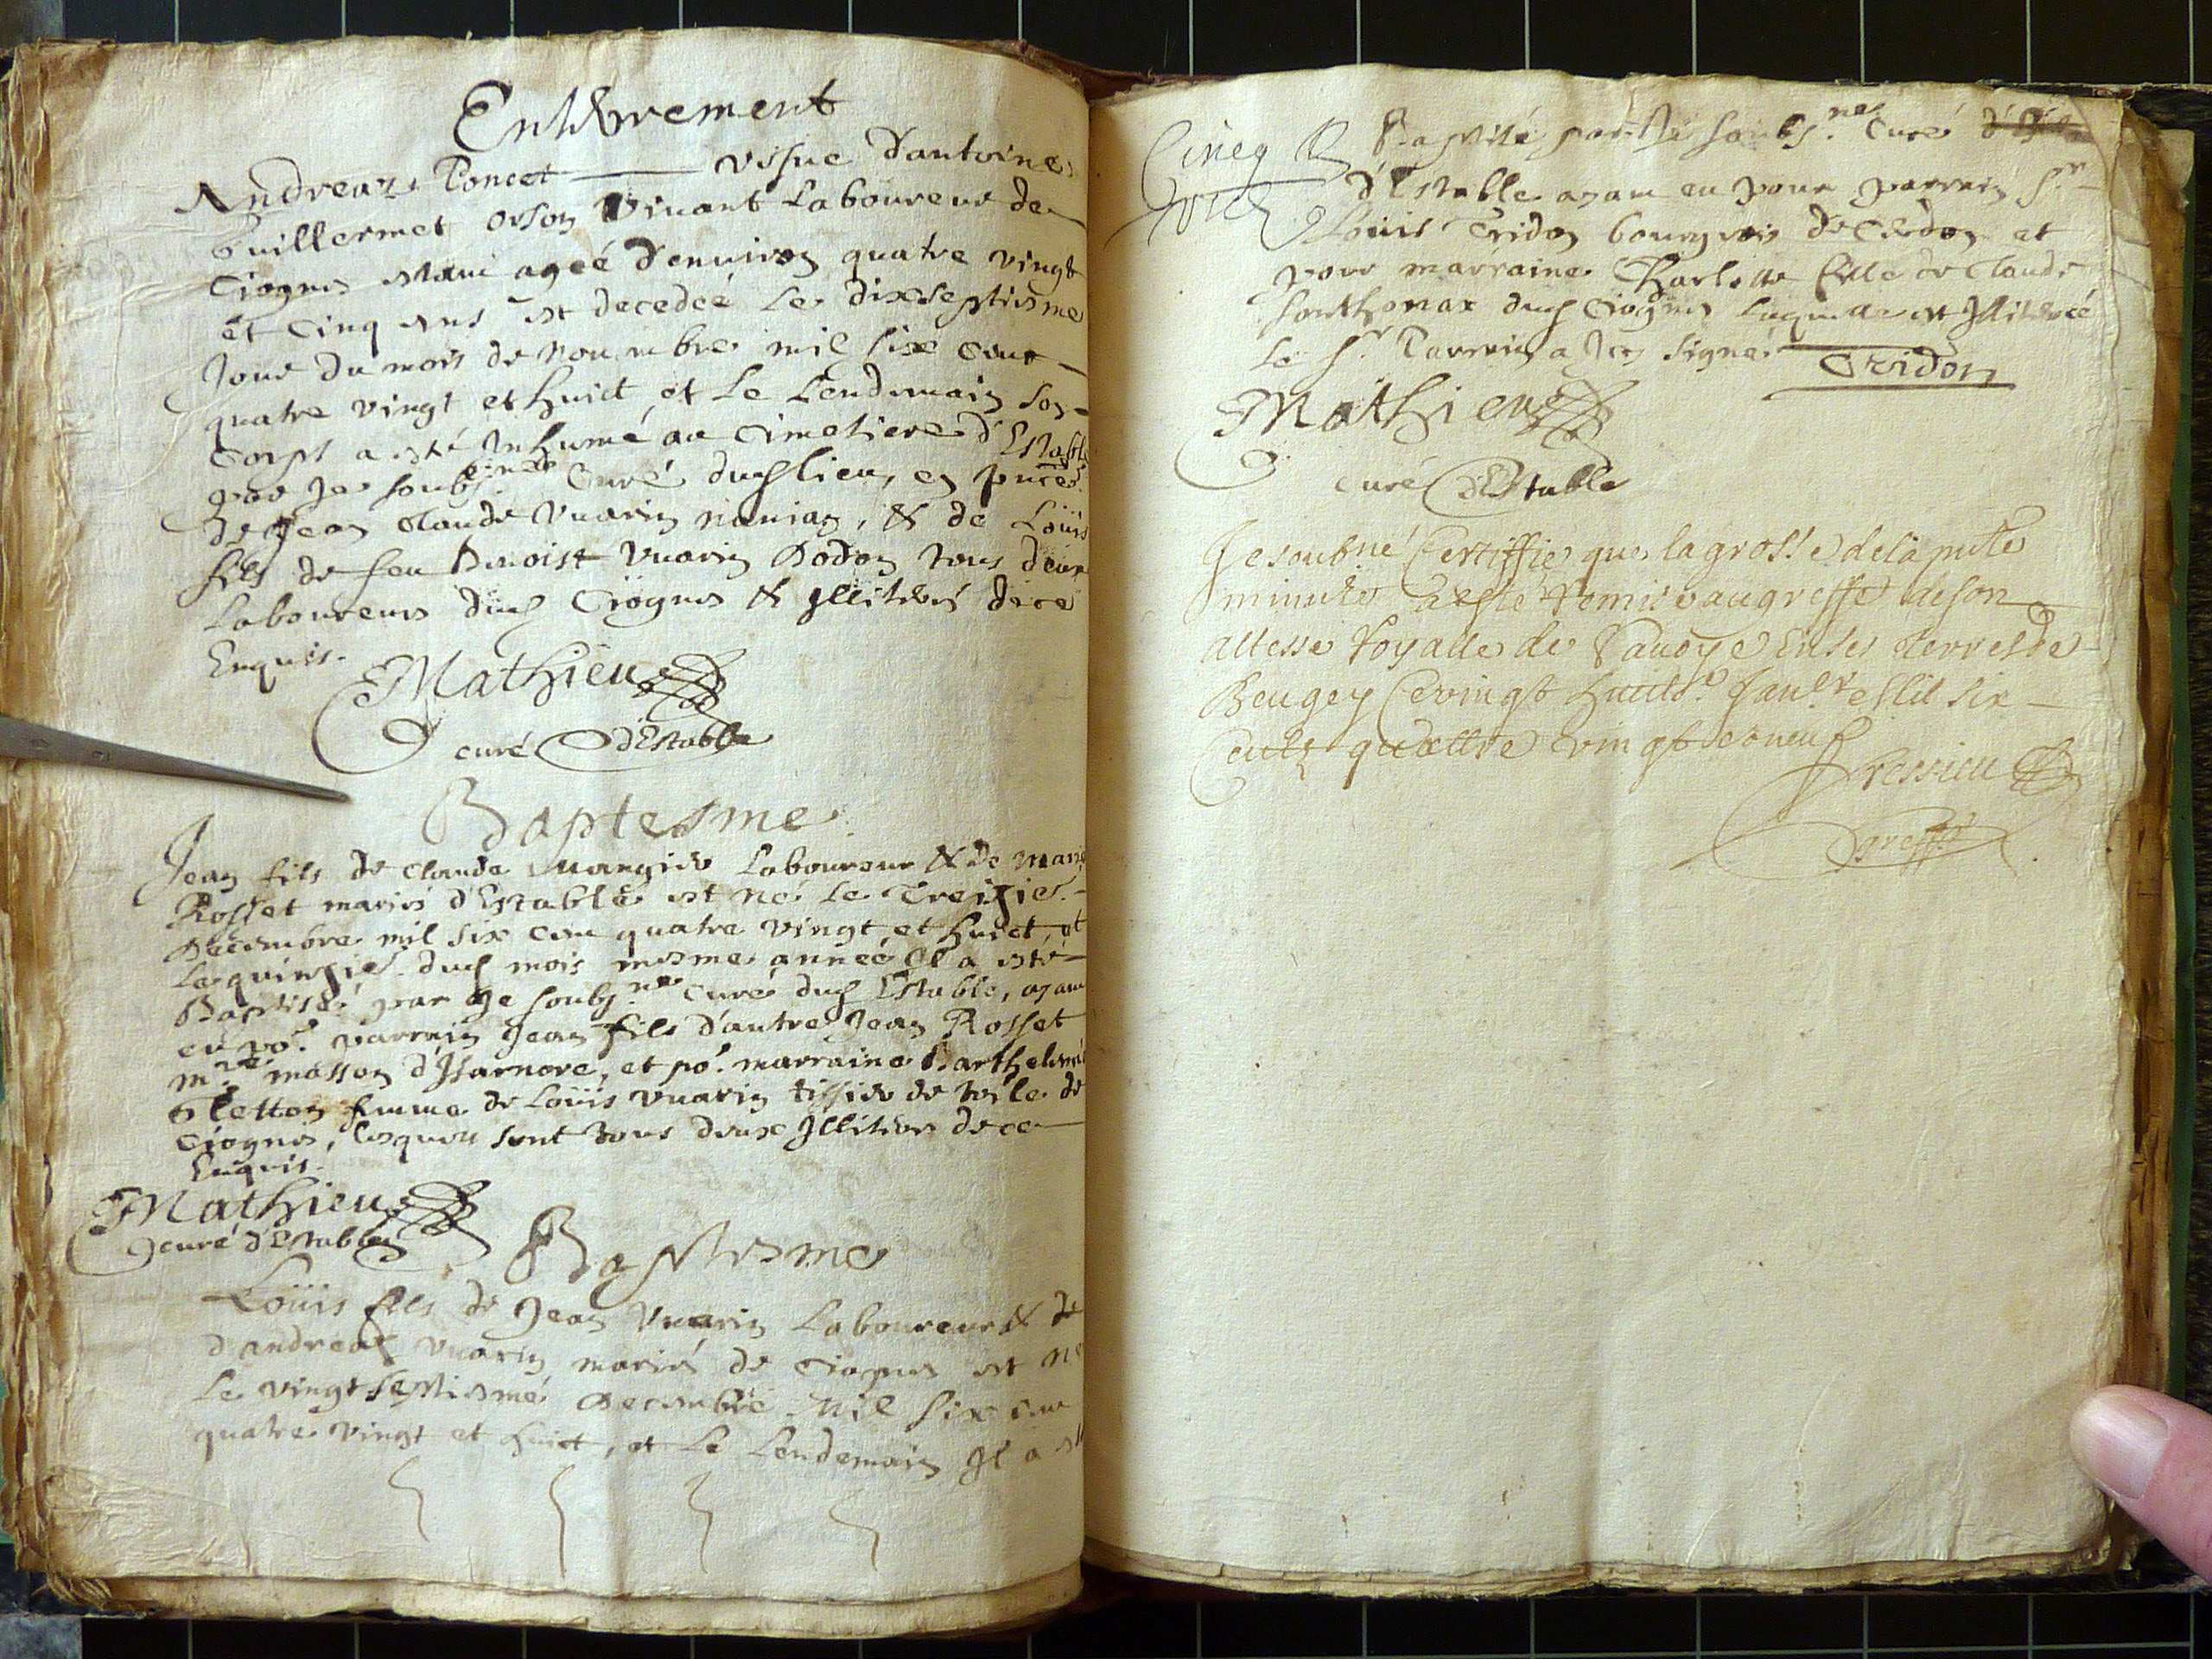 Enterrement
Andreaz Poncet vefue d'antoine
Guillermet Orson Viuant Laboureur de
Ciognes estant ageé d'enuiron quatre vingt
et Cinq ans est decedeé Le dixseptiesme
Jour du mois de nouembre mil six cent
quatre vingt et huict, et Le Lendemain son
Corps a esté Inhumé au Cimetiere d'Estable
par Je soubs.né Curé dud lieu, en pnce
de Jean Claude Vuarin, & de Loüis
fils de feu Benoist Vuarin Dodon tous deux
Laboureurs dud Ciognes & Illiterés de ce
Enquis.
Mathieu
curé d'Estable
Baptesme
Jean fils de Claude Laboureur & de Marie
Rosset mariés d'Estable est né Le Treizie.
Decembre mil six cent quatre vingt et huict, et
Le quinzie. dud mois mesme anneé Il a esté
Baptisé par Je soubs.né Curé dud Estable, ayant
eu po.r parrain Jean fils d'autre Jean Rosset
m.re masson d'Isarnore, et po.r marraine Barthelemie
femme de Loüis Vuarin tissier de toile de
Ciognes, lesquels sont tous deux Illiterés de ce
Enquis.
Mathieu
curé d'Estable
Baptesme
Loüis fils de Jean Vuarin Laboureur & de
d'andreaz Vuarin mariés de Ciognes est né
Le vingt septiesme Decembre mil six cent
quatre vingt et huict, et Le Lendemain Il a esté
Baptisé par Je soubs.né Curé
d'Estable ayant eu pour parrain S.r
Loüis Tridon bourgeois de Cerdon et
pour marraine Charlotte fille de Claude
Southonax dud Ciognes Laquelle est Illitereé
Le S.r Parrain a Icy signé
Tridon
Mathieu
curé d'Estable
Je soubné Certiffie que la grosse de la pnte
minute a esté remise au greffe de son
altesse royalle de Sauoye en ses terres de
Beugey le vingt huict.e Jan.er Mil six
cents quattre vingt et neuf
Bressieu
greffr